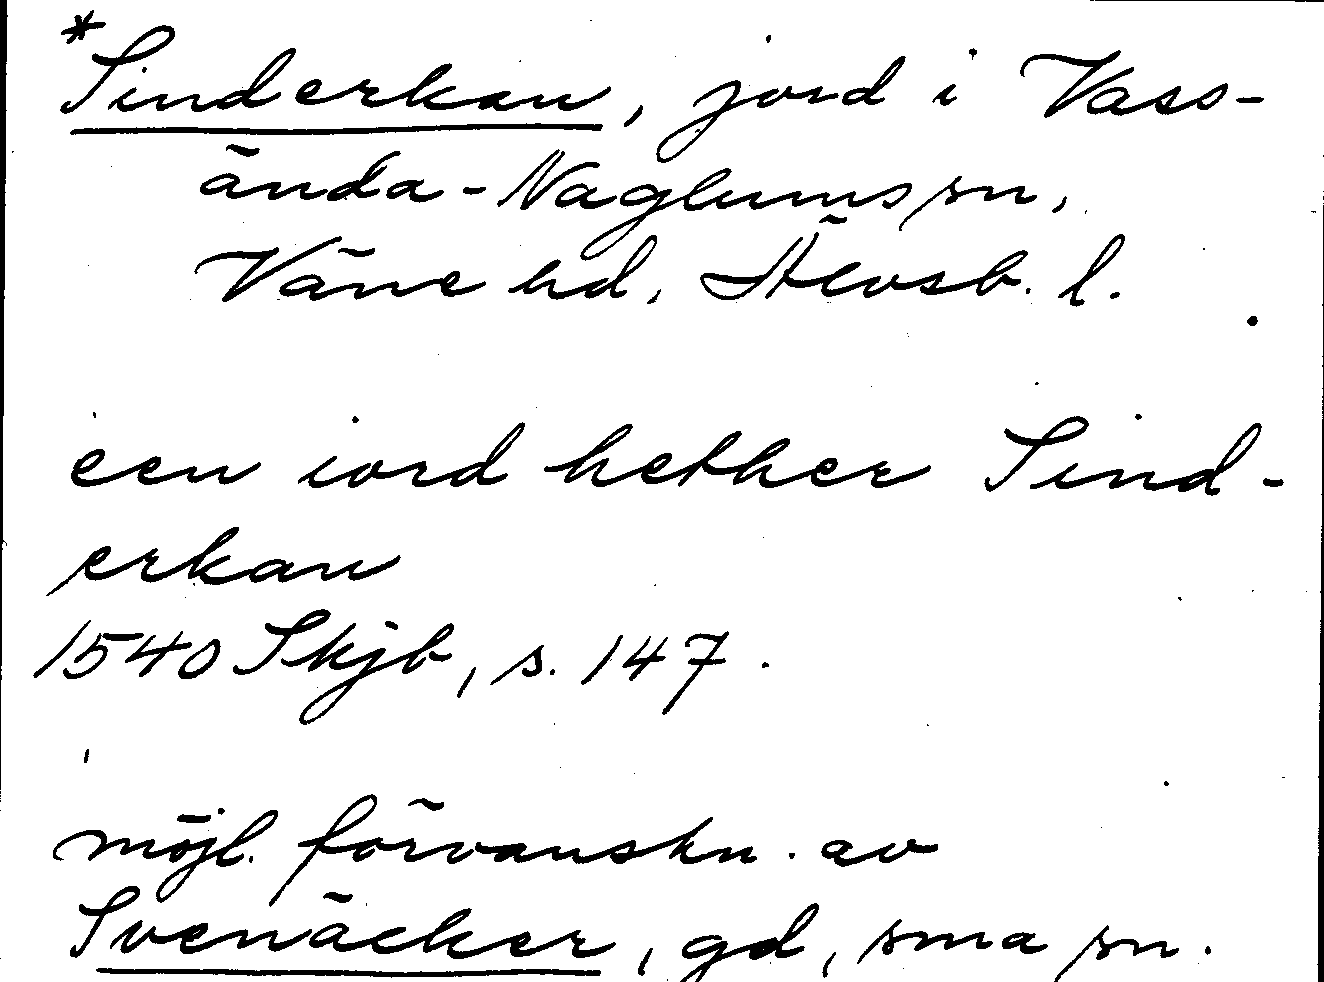 *Sinderkan, jord i Vass-
ända-Naglums sn,
Väne hd, Älvsb. l.
een iord hether Sind-
erkan
1540 Skjb, s. 147.
möjl. förvanskn. av
Svenäcker, gd, sma sn.